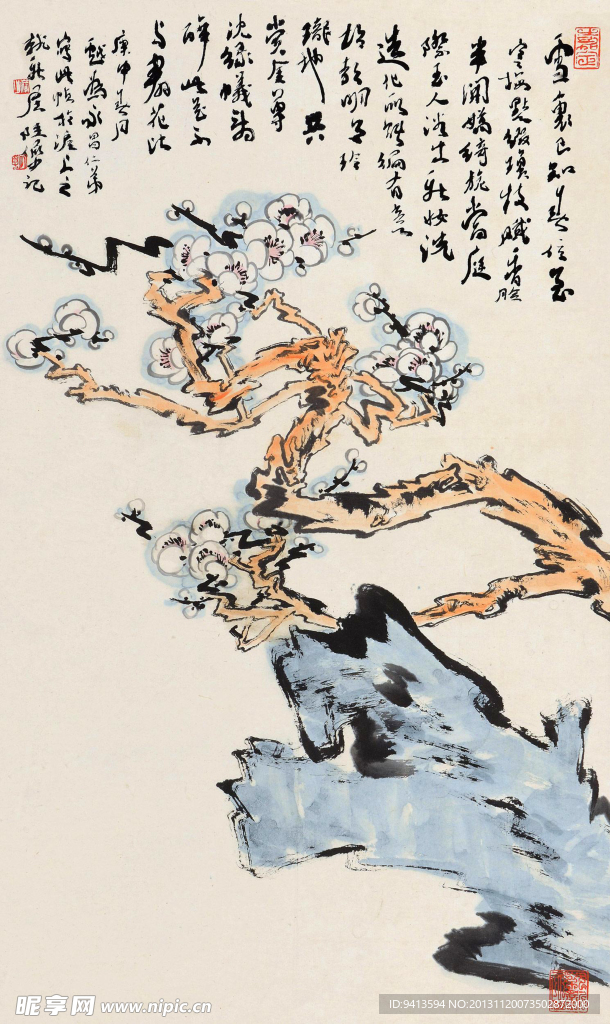 雪裏已知春信至
寒梅點綴瓊枝膩香臉
半開嬌旖旎當庭
際玉人浴出新妝洗
造化可能偏有意
故教明月玲
瓏地共
賞金尊
沈綠蟻莫
醉此花不
與群花比
庚申春月
戲為永昌仁弟
寫此幀於滬上之
新居陸儼記
昵享网 www.nipic.cn
ID:9413594 NO:20131120073502872000